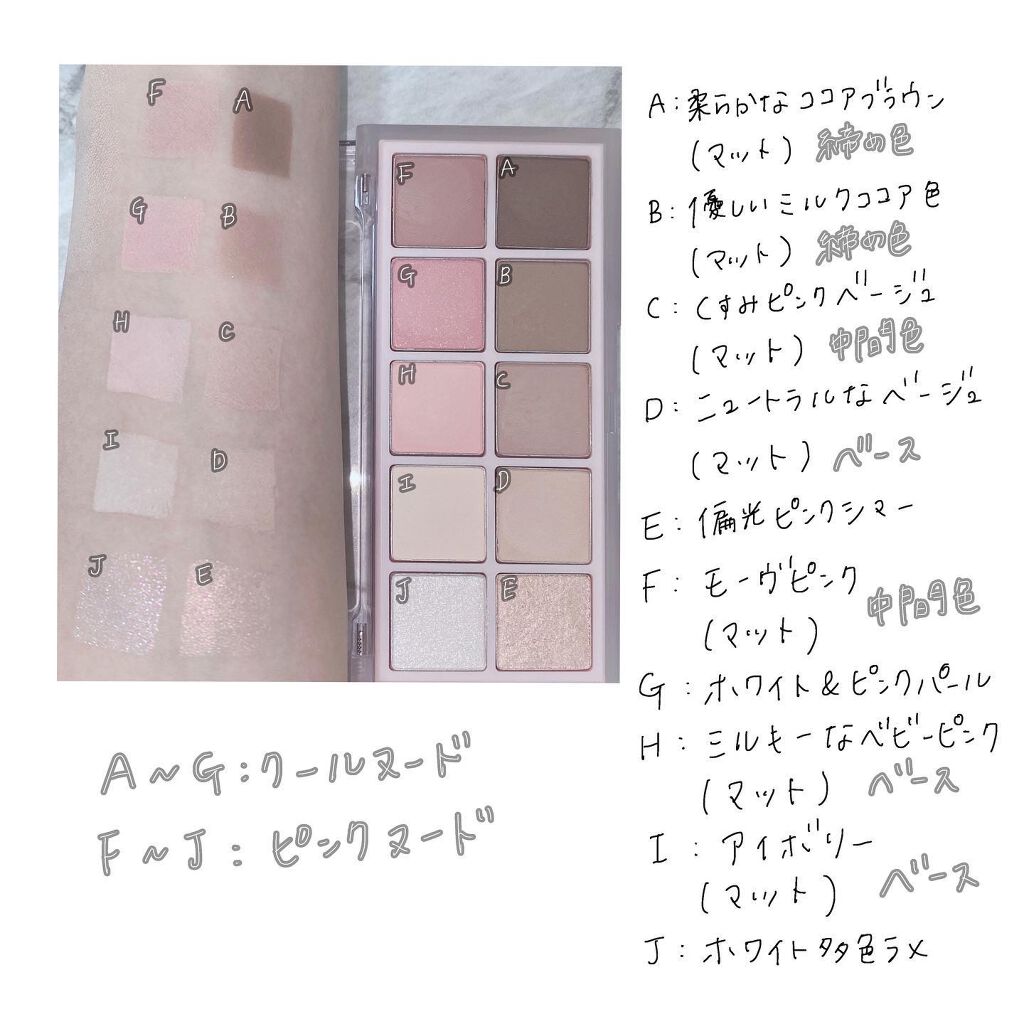 F A
G B
H C
I D
J E
F A
G B
H C
I D
J E
A:柔らかなココアブラウン
(マット) 締め色
B:優しいミルクココア色
(マット) 締め色
C:くすみピンクベージュ
(マット) 中間色
D:ニュートラルなベージュ
(マット) ベース
E:偏光ピンクシマー
F:モーヴピンク
(マット) 中間色
G:ホワイト&ピンクパール
H:ミルキーなベビーピンク
(マット) ベース
I:アイボリー
(マット) ベース
J:ホワイト多色ラメ
A~G:クールヌード
F~J:ピンクヌード